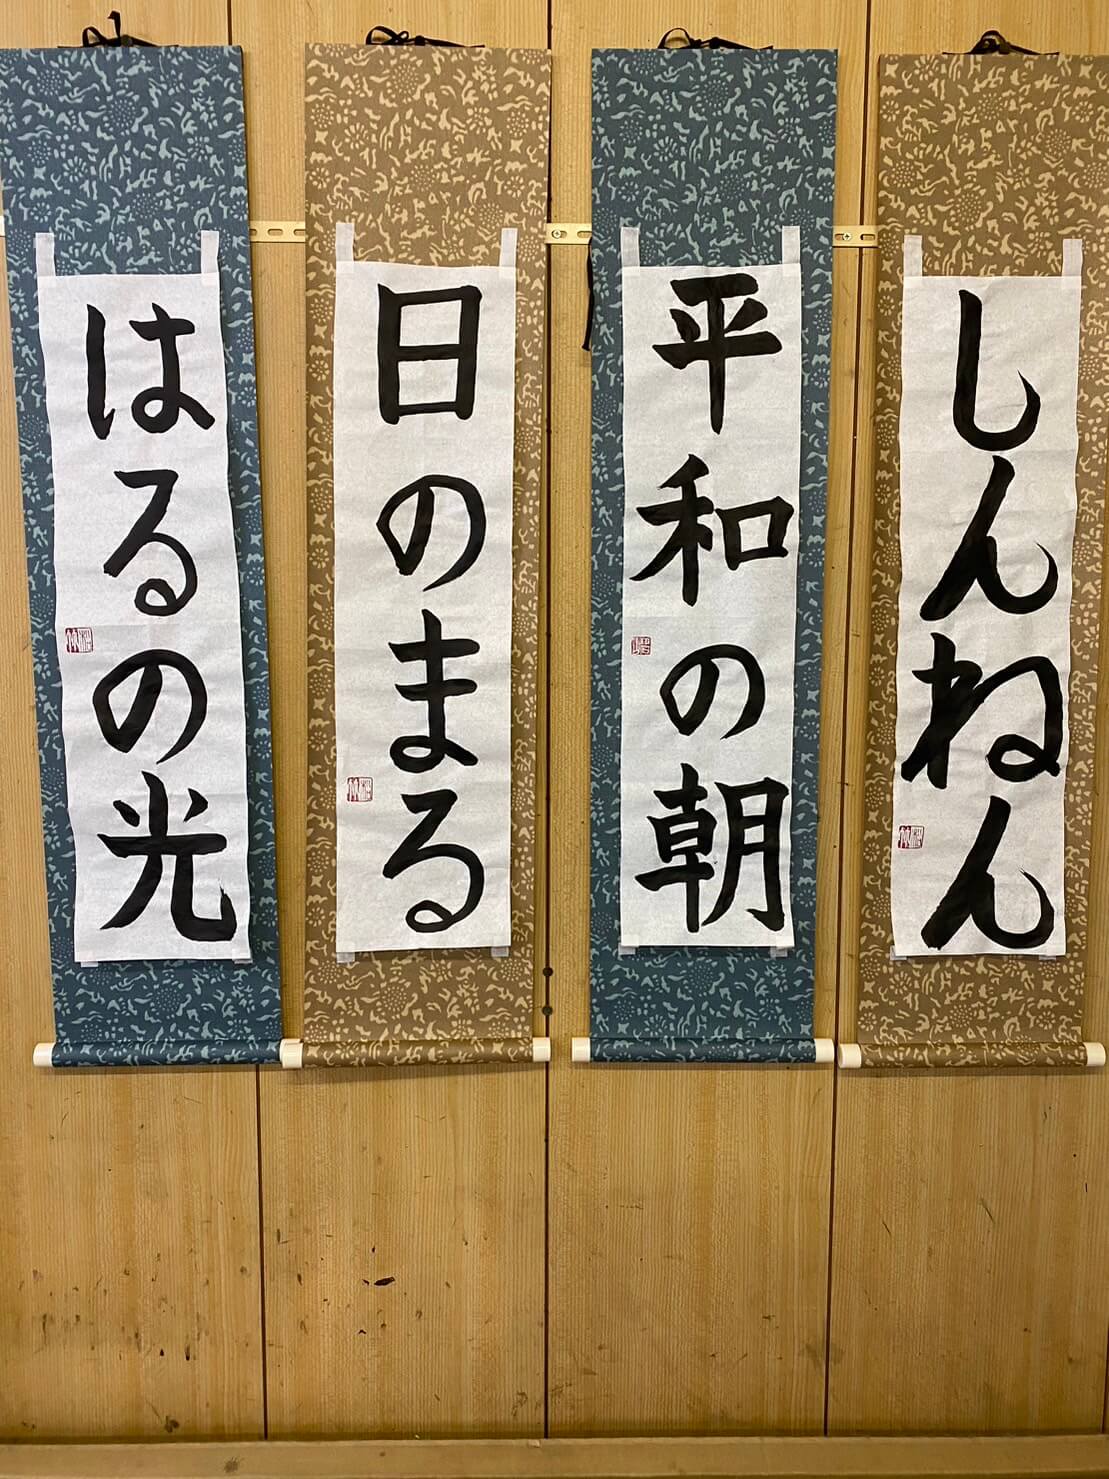 しんねん
平和の朝
日のまる
はるの光